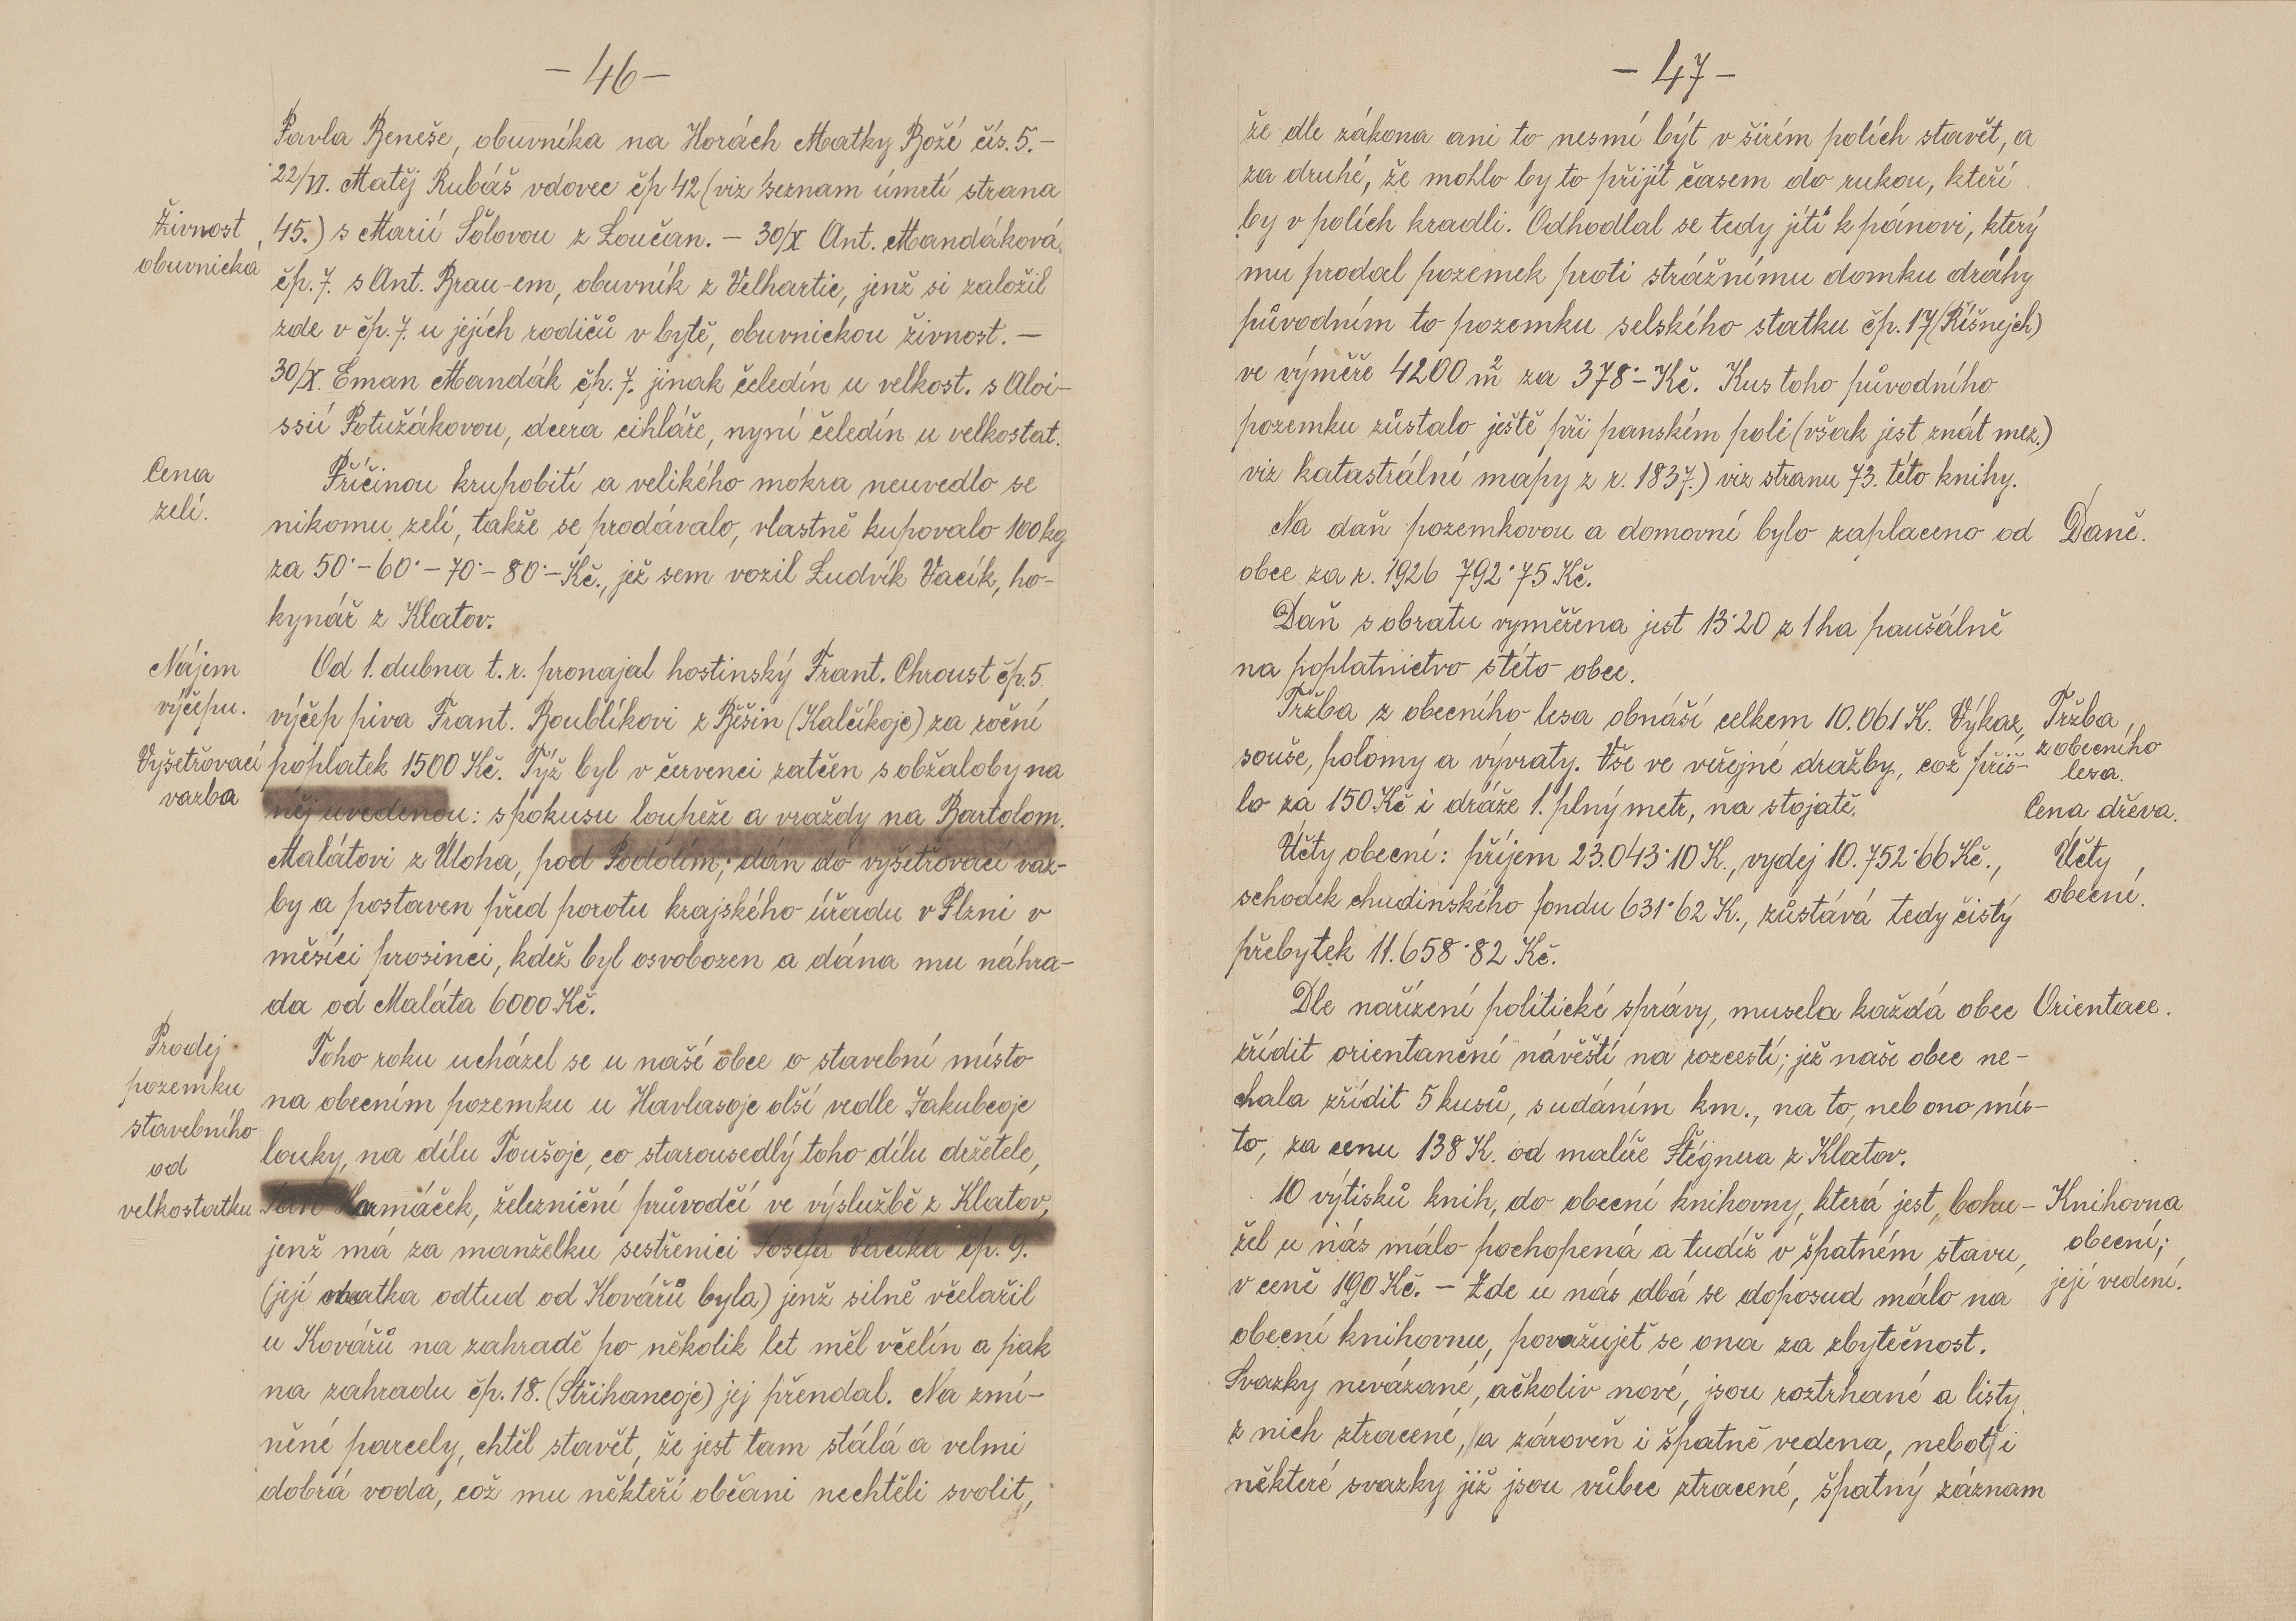 - 46 -
Pavla Beneše, obuvníka na Horách Matky Boží čís. 5. -
22/VI. Matěj Rubáš vdovec čp 42 (viz seznam úmrtí strana
Živnost
obuvnická
45.) s Marií Šolovou z Loučan. - 30/X Ant. Mandáková
čp. 7. s Ant. Brau-em, obuvník z Velhartic, jenž si založil
zde v čp. 7. u jejích rodičů v bytě, obuvnickou živnost. -
30/X. Eman Mandák čp. 7. jinak čeledín u velkost. s Aloi-
ssií Potužákovou, dcera cihláře, nyní čeledín u velkostat.
Cena
zelí.
Příčinou krupobití a velikého mokra neuvedlo se
nikomu zelí, takže se prodávalo, vlastně kupovalo 100 kg
za 50·- 60·- 70·- 80·- Kč., jež sem vozil Ludvík Vacík, ho-
kynář z Klatov.
Nájem
výčepu.
Od 1. dubna t. r. pronajal hostinský Frant. Chroust čp. 5
výčep piva Frant. Boublíkovi z Běšin (Kalčíkoje) za roční
Vyšetřovací
vazba
poplatek 1500 Kč. Týž byl v červenci zatčen s obžaloby na
něj uvedenou: s pokusu loupeže a vraždy na Bartolom.
Malátovi z Úloha, pod Podolím; dán do vyšetřovací vaz-
by a postaven před porotu krajského úřadu v Plzni v
měsíci prosinci, kdež byl osvobozen a dána mu náhra-
da od Maláta 6000 Kč.
Prodej
pozemku
stavebního
od
velkostatku
Toho roku ucházel se u naší obce o stavební místo
na obecním pozemku u Havlasoje olší vedle Jakubcoje
louky, na dílu Toušoje, co starousedlý toho dílu držetele,
Jan Harmáček, železniční průvodčí ve výslužbě z Klatov,
jenž má za manželku sestřenici Josefa Vacíka čp. 9.
(její matka odtud od Kovářů byla) jenž silně včelařil
u Kovářů na zahradě po několik let měl včelín a pak
na zahradu čp. 18. (Střihancoje) jej přendal. Na zmí-
něné parcely, chtěl stavět, že jest tam stálá a velmi
dobrá voda, což mu někteří občani nechtěli svolit,
- 47 -
že dle zákona ani to nesmí být v širém polích stavět, a
za druhé, že mohlo by to přijít časem do rukou, kteří
by v polích kradli. Odhodlal se tedy jíti k pánovi, který
mu prodal pozemek proti strážnímu domku dráhy
původním to pozemku selského statku čp. 17 (Říšnejch)
ve výměře 4200 m2 za 378·- Kč. Kus toho původního
pozemku zůstalo ještě při panském poli (však jest znát mez.)
viz katastrální mapy z r. 1837.) viz stranu 73. této knihy.
Na daň pozemkovou a domovní bylo zaplaceno od
Daně.
obce za r. 1926 792·75 Kč.
Daň s obratu vyměřena jest 13·20 z 1 ha paušálně
na poplatnictvo s této obce.
Tržba z obecního lesa obnáší celkem 10.061 K. Výkaz,
Tržba
z obecního
lesa.
souše, polomy a vývraty. Vše ve veřejné dražby, což přiš-
lo za 150 Kč i dráže 1. plný metr, na stojatě.
Cena dřeva.
Účty obecní: příjem 23.043·10 K., vydej 10.752·66 Kč.,
Účty
obecní.
schodek chudinského fondu 631·62 K., zůstává tedy čistý
přebytek 11.658·82 Kč.
Dle nařízení politické správy, musela každá obec
Orientace.
zřídit orientanční návěstí na rozcestí; jež naše obec ne-
chala zřídit 5 kusů, s udáním km., na to, neb ono mís-
to, za cenu 138 K. od malíře Štégnera z Klatov.
10 výtisků knih, do obecní knihovny, která jest, bohu-
Knihovna
obecní;
její vedení.
žel u nás málo pochopená a tudíž v špatném stavu,
v ceně 190 Kč. - Zde u nás dbá se doposud málo na
obecní knihovnu, považujeť se ona za zbytečnost.
Svazky nevázané, ačkoliv nové, jsou roztrhané a listy
z nich ztracené, a zároveň i špatně vedena, neboť i
některé svazky již jsou vůbec ztracené, špatný záznam